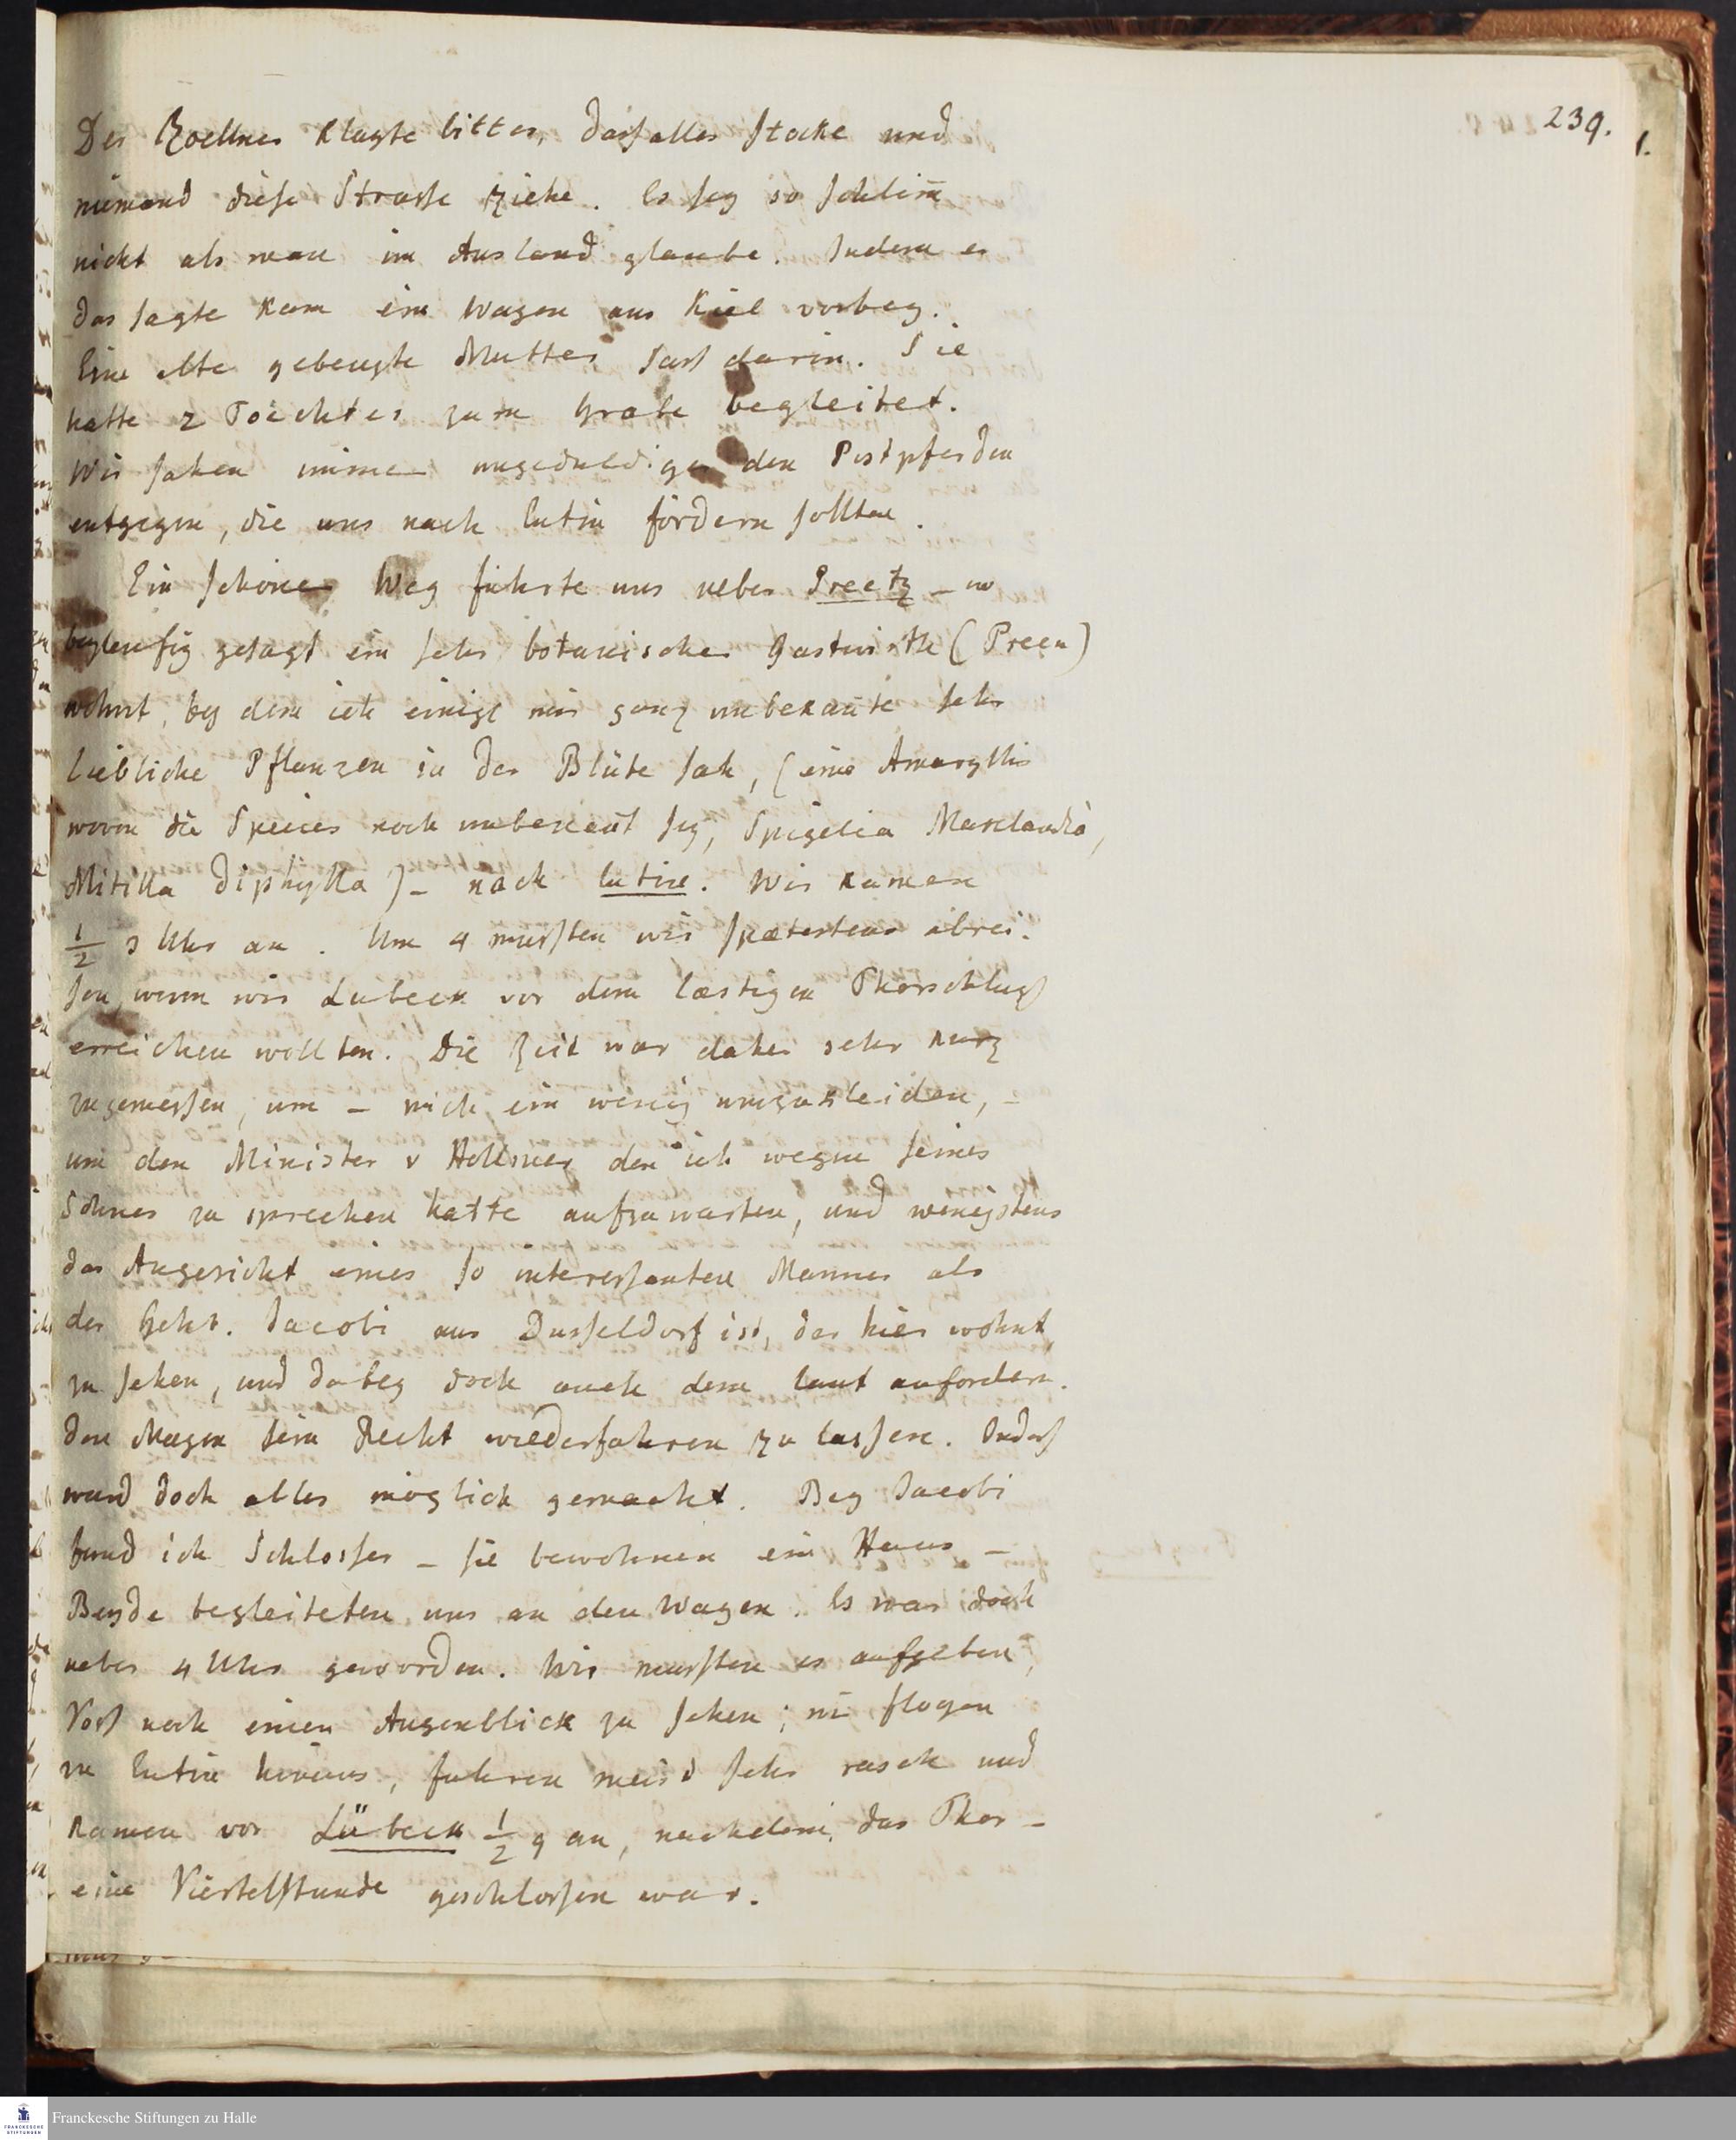 239.
1.
Der Zoellner klagte bitter, dass alles stocke und
niemand diese Strasse ziehe. Es sey so schlim̄
nicht als man im Ausland glaube. Indem er
das sagte kam ein Wagen aus Kiel vorbey.
Eine alte gebeugte Mutter sass darin. Sie
hatte 2 Toechter zum Grabe begleitet.
Wir sahen immer ungeduldiger den Postpferden
entgegen, die uns nach Eutin fördern sollten.
Ein schöner Weg führte uns ueber Preetz – wo
beylaeufig gesagt ein sehr botanischer Gastwirth (Preen)
wohnt, bey dem ich einige mir ganz unbekan̄te sehr
liebliche Pflanzen in der Blüte sah, (eine Amaryllis
wovon die Species noch unbekan̄t sey, Spigelia Marelandia,
Mitilla diphylla) – nach Eutin. Wir kamen
1/2 3 Uhr an. Um 4 mussten wir spætestens abrei-
sen, wenn wir Lubeck vor dem læstigen Thorschluss
erreichen wollten. Die Zeit war daher sehr kurz
zugemessen, um – mich ein wenig umzukleiden, –
um den Minister v Hollmer den ich wegen seines
Sohnes zu sprechen hatte aufzuwarten, und wenigstens
das Angesicht eines so interessanten Mannes als
der Geh. Jacobi aus Dusseldorf ist, der hier wohnt,
zu sehen, und dabey doch auch dem laut anfordern-
den Magen sein Recht wiederfahren zu lassen. Indess
ward doch alles möglich gemacht. Bey Jacobi
fand ich Schlosser – sie bewohnen ein Haus –
Beyde begleiteten uns an den Wagen. Es war doch
ueber 4 Uhr geworden. Wir mussten es aufgeben,
Voss noch einen Augenblick zu sehen; wir flogen
zu Eutin hinaus, fuhren meist sehr rasch und
kamen vor Lübeck 1/2 9 an, nachdem das Thor –
eine Viertelstunde geschlossen war.
Franckesche Stiftungen zu Halle
FRANCKESCHE
STIFTUNGEN